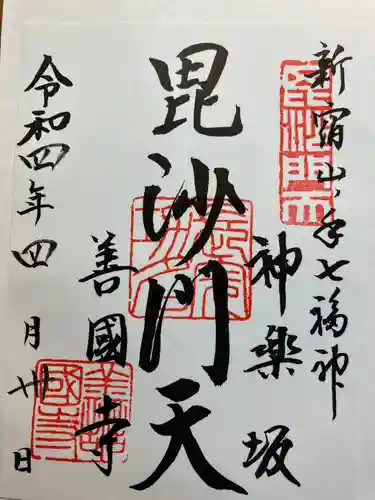 新宿山ノ手七福神
毘沙門天
神楽坂
毘沙門天
善國寺
令和四年四月卅日